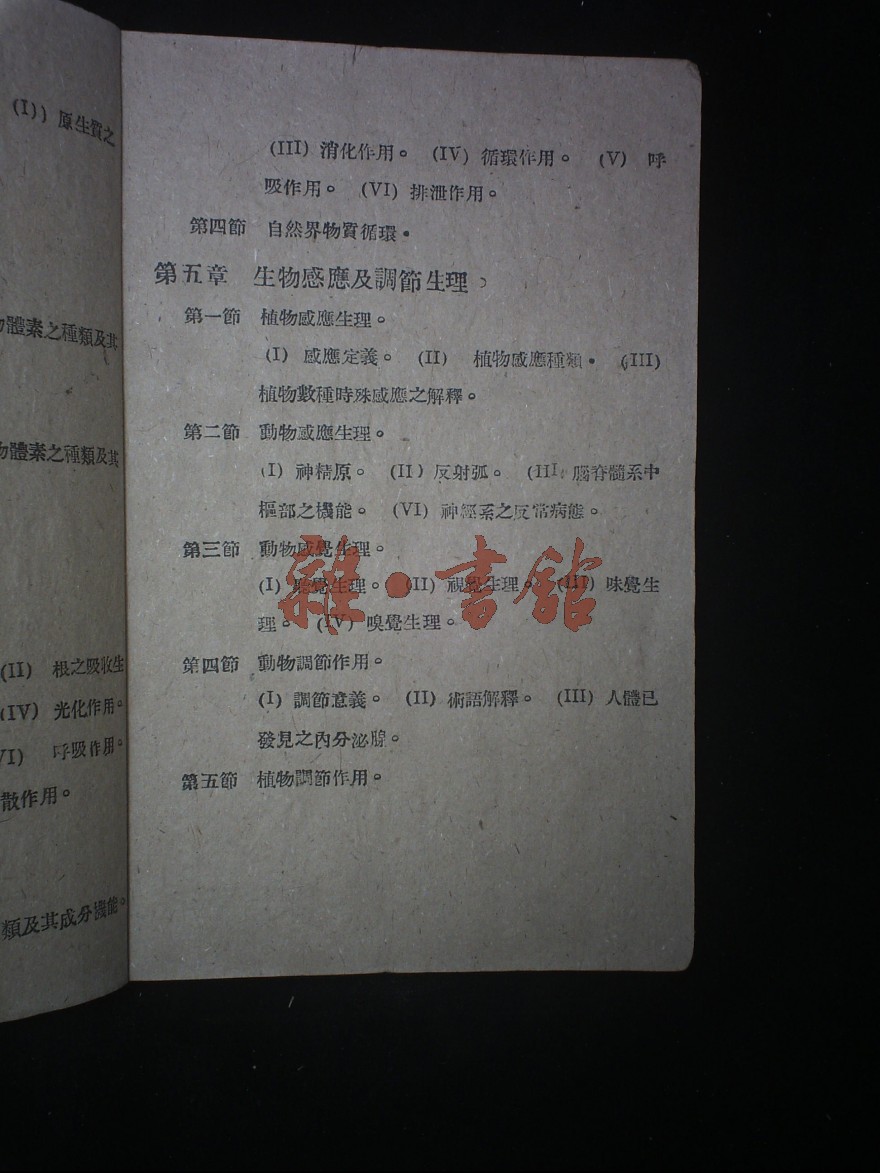 (I)) 原生質之
物體素之種類及其
物體素之種類及其
(II) 根之吸收生
(IV) 光化作用。
VI) 呼吸作用。
散作用。
類及其成分機能。
(III) 消化作用。 (IV) 循環作用。 (V) 呼
吸作用。 (VI) 排泄作用。
第四節 自然界物質循環。
第五章 生物感應及調節生理
第一節 植物感應生理。
(I) 感應定義。 (II) 植物感應種類。 (III)
植物數種時殊感應之解釋。
第二節 動物感應生理。
(I) 神精原。 (II) 反射弧。 (III) 腦脊髓系中
樞部之機能。 (VI) 神經系之反常病態。
第三節 動物感覺生理。
(I) 聽覺生理。 (II) 視覺生理。 (III) 味覺生
理。 (IV) 嗅覺生理。
第四節 動物調節作用。
(I) 調節意義。 (II) 術語解釋。 (III) 人體已
發見之內分泌腺。
第五節 植物調節作用。
雜·書館